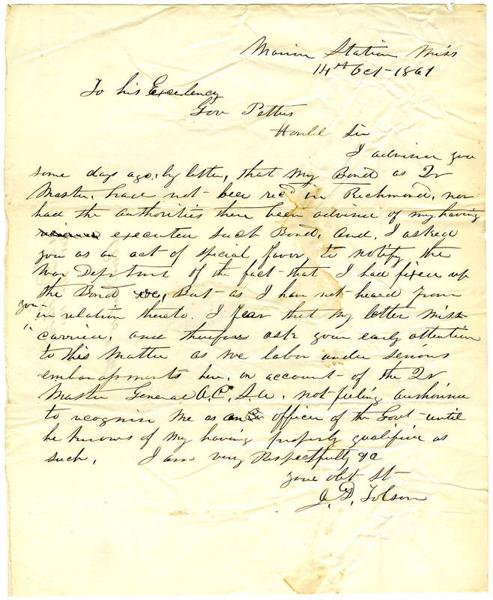 Marion Station Miss
14th Oct - 1861
To his Excelency
Gov Pettus
Honbl Sir
I advised you
some days ago, by letter, that my Bond as Qr
Master, have not been recd in Richmond, nor
had the authorities there been advised of my having
executed such Bond, And, I asked
you as an act of special favor, to notify the
War Department of the fact that I had fixed up
the Bond &c, But as I have not heard from
you
in relation thereto. I fear that my letter mis-
carried, and therefore ask your early attention
to this Matter as we labor under serious
embarrassments here, on account of the Qr
Master General A.C.S.A. not feeling authorised
to recognise me as an officer of the Govt until
he knows of my having properly qualified as
such. I am very Respectfully &c
your obt St
J. D. Tolson